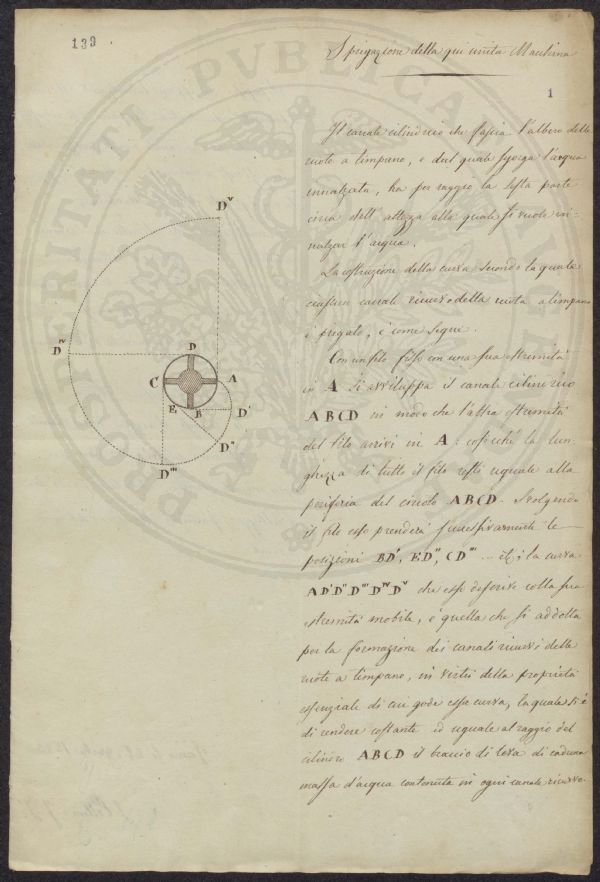 139
Spiegazione della qui unita Macchina
1
Il canale cilindrico che fascia l'albero delle
ruote a timpano, e dal quale sgorga l'acqua
innalzata, ha per raggio la sesta parte
circa dell'altezza alla quale si vuole in-
nalzar l'acqua.
La costruzione della curva secondo la quale
ciascun canale ricurvo della ruota a timpano
è piegato, è come segue.
Con un filo fisso con una sua estremità
in A si avviluppa il canale cilindrico
ABCD in modo che l'altra estremità
del filo arrivi in A: cosicchè la lun-
ghezza di tutto il filo resti uguale alla
periferia del circolo ABCD. Svolgendo
il filo esso prenderà successivamente le
posizioni BD', ED'', CD''' ... etc; la curva
AD'D''D'''DᴵⱽDⱽ che esso descrive colla sua
estremità mobile, è quella che si addotta
per la formazione dei canali ricurvi delle
ruote a timpano, in virtù della proprietà
essenziale di cui gode essa curva, la quale si è
di rendere costante ed uguale al raggio del
cilindro ABCD il braccio di leva di cadauna
massa d'acqua contenuta in ogni canale ricurvo.
Dⱽ
Dᴵⱽ
D
C
A
E
B
D'
D''
D'''
PROSPERITATI PVBLICAE